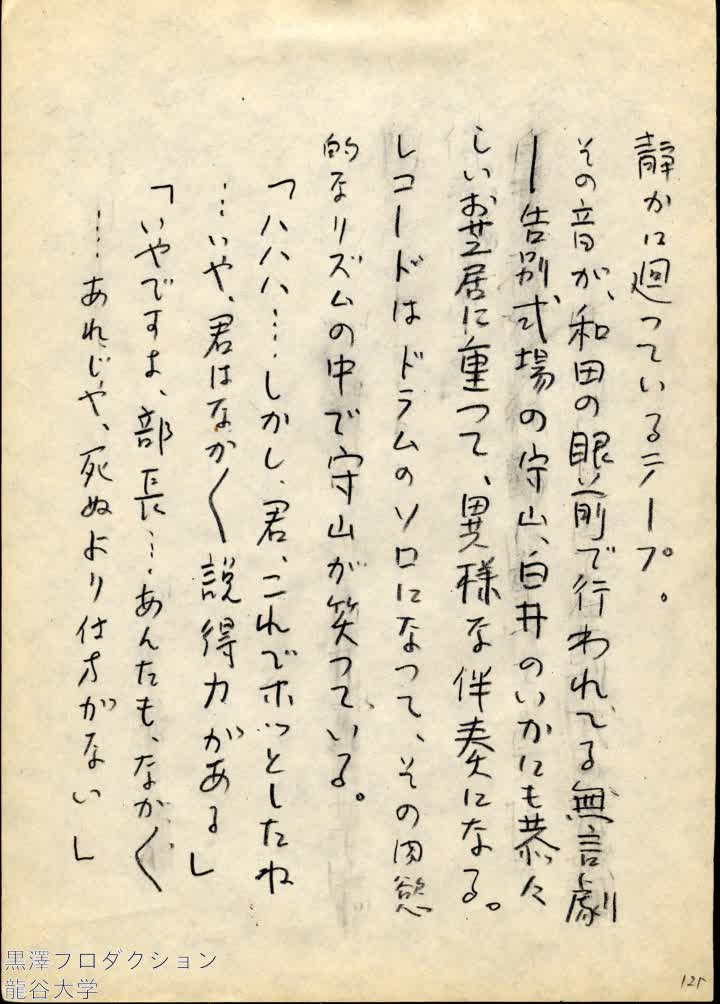 静かに廻つているテープ。
その音が、和田の眼前で行われてる無言劇
―告別式場の守山、白井のいかにも恭々
しいお芝居に重つて、異様な伴奏になる。
レコードはドラムのソロになつて、その肉慾
的なリズムの中で守山が笑つている。
「ハハハ……しかし、君、これでホッとしたね
…いや、君はなか〱説得力がある」
「いやですよ、部長…あんたも、なか〱
…あれじや、死ぬより仕方がない」
125
黒澤プロダクション
龍谷大学